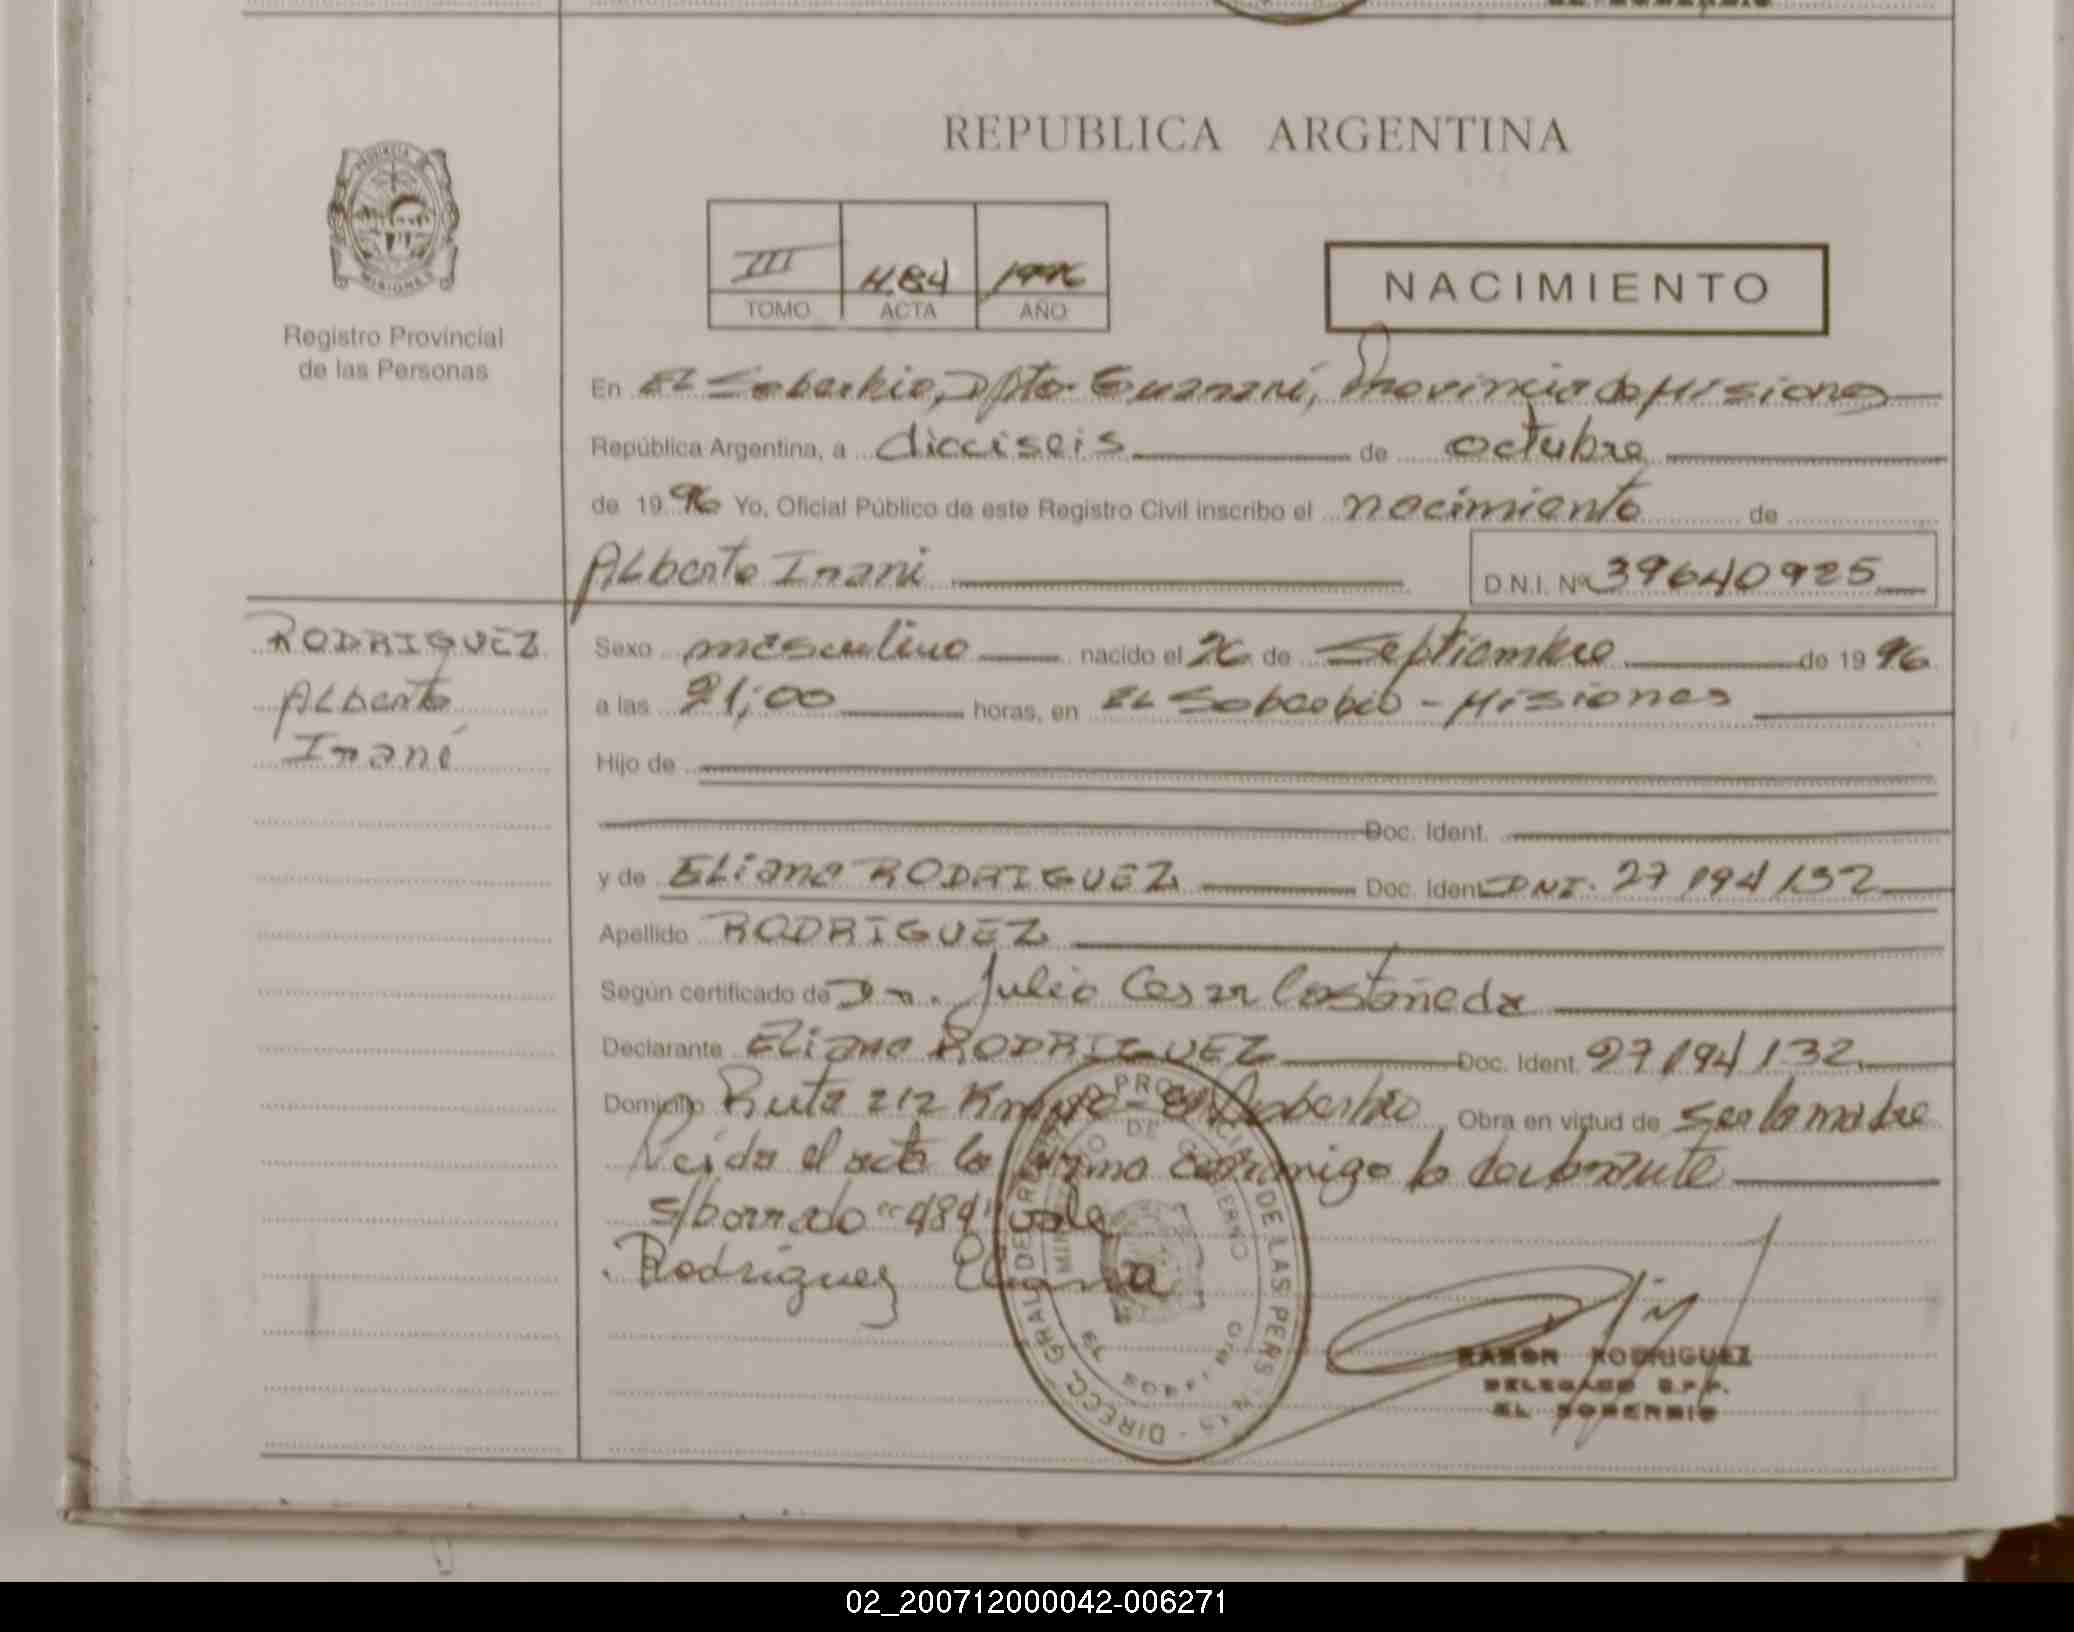 REPUBLICA ARGENTINA
PROVINCIA DE
MISIONES
Registro Provincial
de las Personas
III 484 1996
TOMO ACTA AÑO
NACIMIENTO
En El Soberbio, Dpto Guaraní, Provincia de Misiones
República Argentina, a dieciseis de octubre
de 1996 Yo, Oficial Público de este Registro Civil inscribo el nacimiento de
Alberto Iraní D.N.I. Nº 39640925
RODRIGUEZ
Alberto
Iraní
Sexo masculino nacido el 26 de Septiembre de 1996
a las 21;00 horas, en El Soberbio - Misiones
Hijo de
Doc. Ident.
y de Eliana RODRIGUEZ Doc. Ident. DNI. 27194132
Apellido RODRIGUEZ
Según certificado de Dr. Julio Cesar Castañeda
Declarante Eliana RODRIGUEZ Doc. Ident. 27194132
Domicilio Ruta 212 El Soberbio Obra en virtud de ser la madre
Leida el acta la firma conmigo la declarante
s/borrado "484" vale
Rodriguez Eliana
RAMON RODRIGUEZ
DELEGADO R.P.P.
EL SOBERBIO
02_200712000042-006271